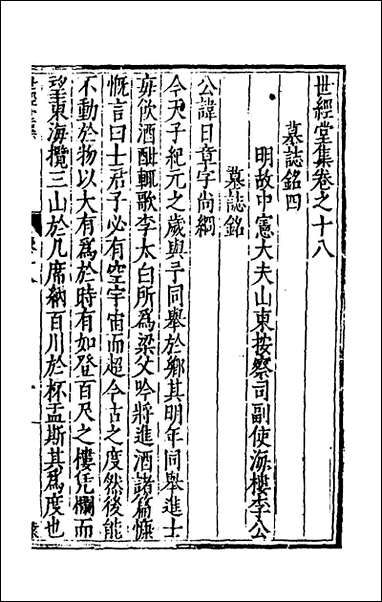 世經堂集卷之十八
墓誌銘四
明故中憲大夫山東按察司副使海樓李公
墓誌銘
公諱日章字尚綱
今天子紀元之歲與予同舉於鄉其明年同舉進士
雍飲酒酣輒歌李太白所為梁父吟將進酒諸篇慷
慨言曰士君子必有空宇宙而超今古之度然後能
不動於物以大有為於時有如登百尺之樓凭欄而
望東海攬三山於几席納百川於杯盂斯其為度也